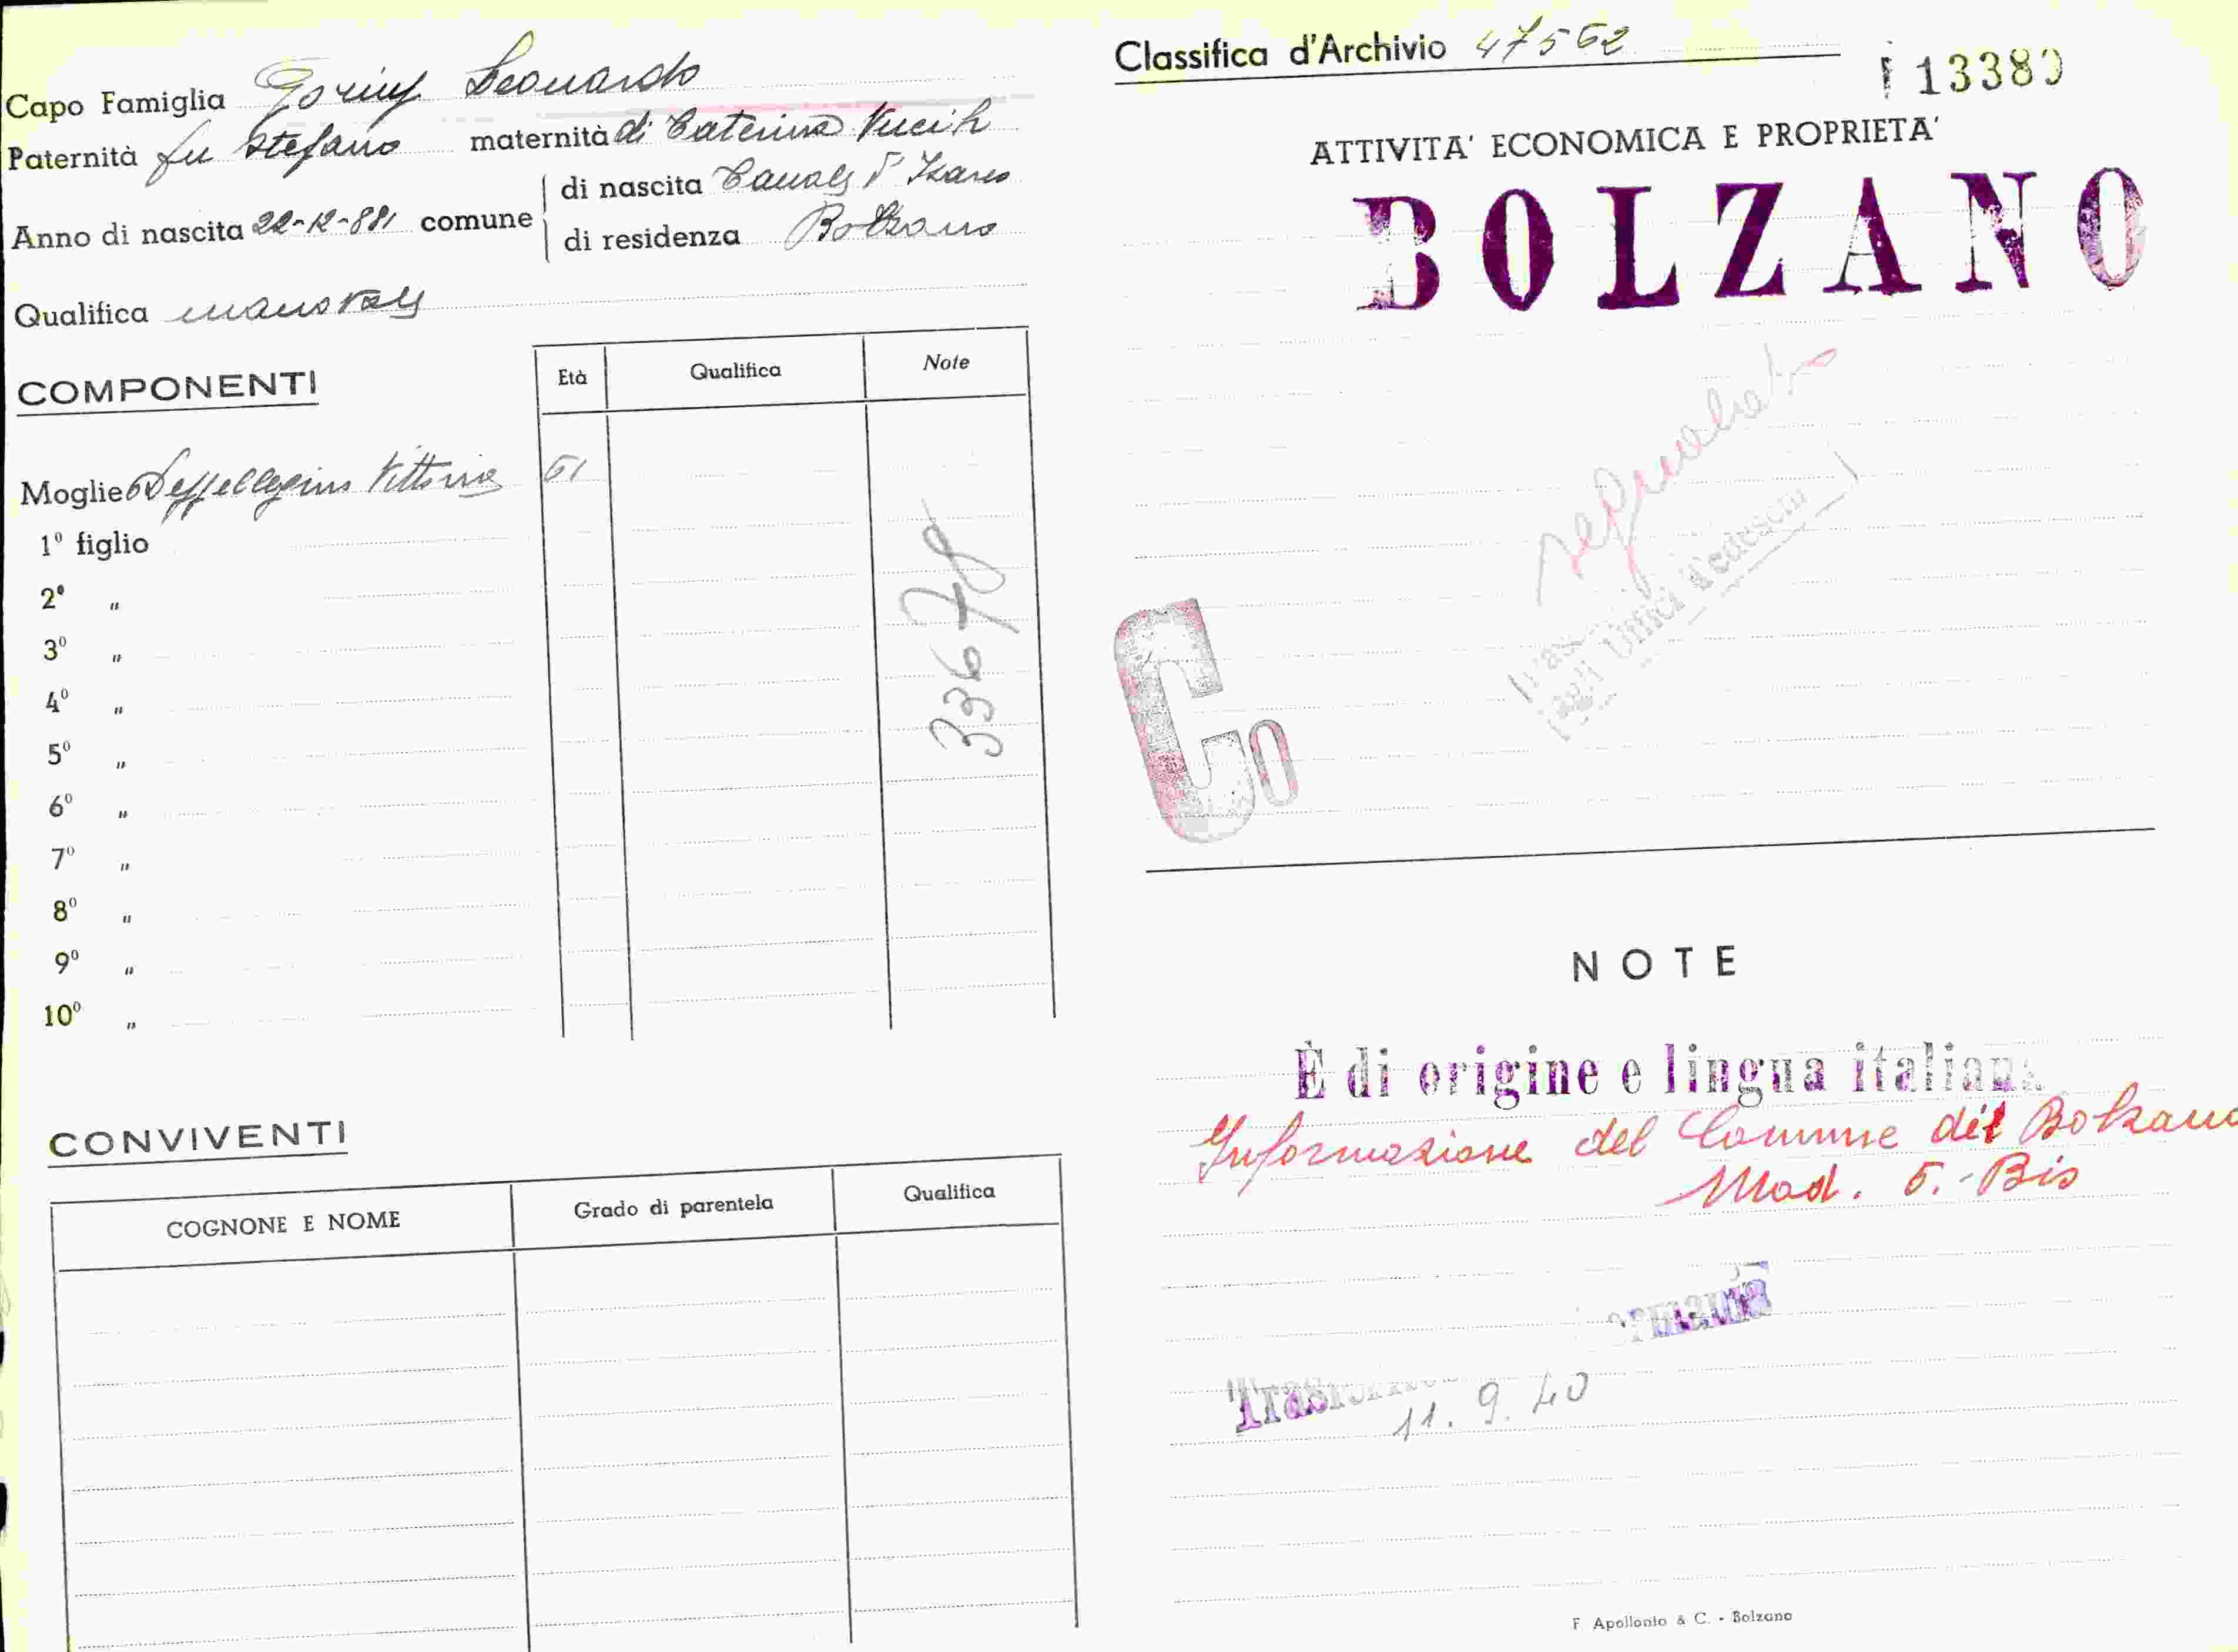 Capo Famiglia Leonardo
Paternità fu Stefano maternità di Caterina Vucih
Anno di nascita 22-12-881 comune di nascita Canale d'Isonzo
di residenza Bolzano
Qualifica manovale
COMPONENTI
Età Qualifica Note
Moglie Vittoria 61
1º figlio
2º "
3º "
4º "
5º "
6º "
7º "
8º "
9º "
10º "
33678
CONVIVENTI
COGNONE E NOME Grado di parentela Qualifica
Classifica d'Archivio 47562
13380
ATTIVITA' ECONOMICA E PROPRIETA'
BOLZANO
segnalato
agli Uffici Tedeschi
Co
NOTE
È di origine e lingua italiana
Informazione del Comune di Bolzano
Mod. 5.-Bis
11.9.40
F. Apollonio & C. - Bolzano